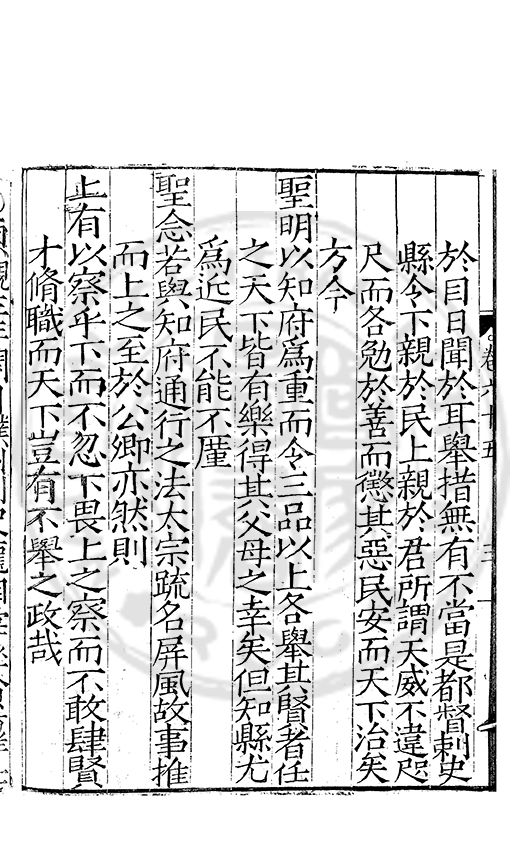 卷六十五
三
於目日聞於耳舉措無有不當是都督刺史
縣令下親於民上親於君所謂天威不違咫
尺而各勉於善而懲其惡民安而天下治矣
方今
聖明以知府為重而令三品以上各舉其賢者任
之天下皆有樂得其父母之幸矣但知縣尤
為近民不能不廑
聖念若與知府通行之法太宗疏名屏風故事推
而上之至於公卿亦然則
上有以察乎下而不忽下畏上之察而不敢肆賢
才脩職而天下豈有不舉之政哉